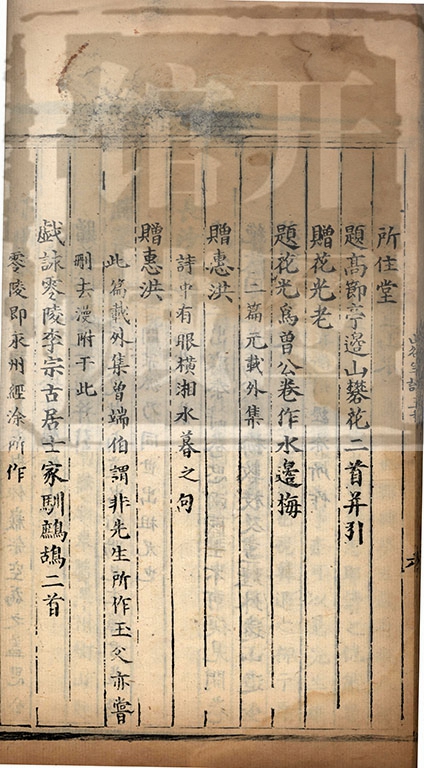 所住堂
題高節亭邊山礬花二首并引
贈花光老
題花光為曾公卷作水邊梅
二篇元載外集
贈惠洪
詩中有眼横湘水暮之句
贈惠洪
此篇載外集曾端伯謂非先生所作玉父亦嘗
刪去漫附于此
戯詠零陵李宗古居士家馴鷓鴣二首
零陵即永州經涂所作